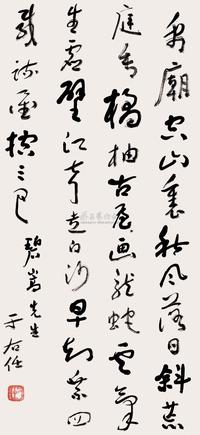 禹廟空山裏秋風落日斜荒
庭垂橘柚古屋画龍蛇雲氣
生虛壁江聲走白沙早知乘四
載疏鑿控三巴
碧嵩先生
于右任